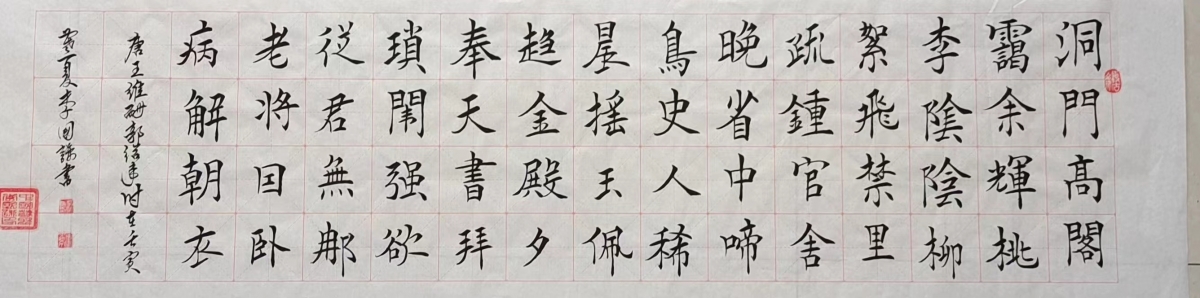 洞門高閣
靄余輝桃
李陰陰柳
絮飛禁里
疏鍾官舍
晚省中啼
鳥史人稀
晨摇玉佩
趋金殿夕
奉天書拜
瑣闈强欲
従君無那
老将囙卧
病解朝衣
唐王維酬郭给事时在壬寅
夏李書